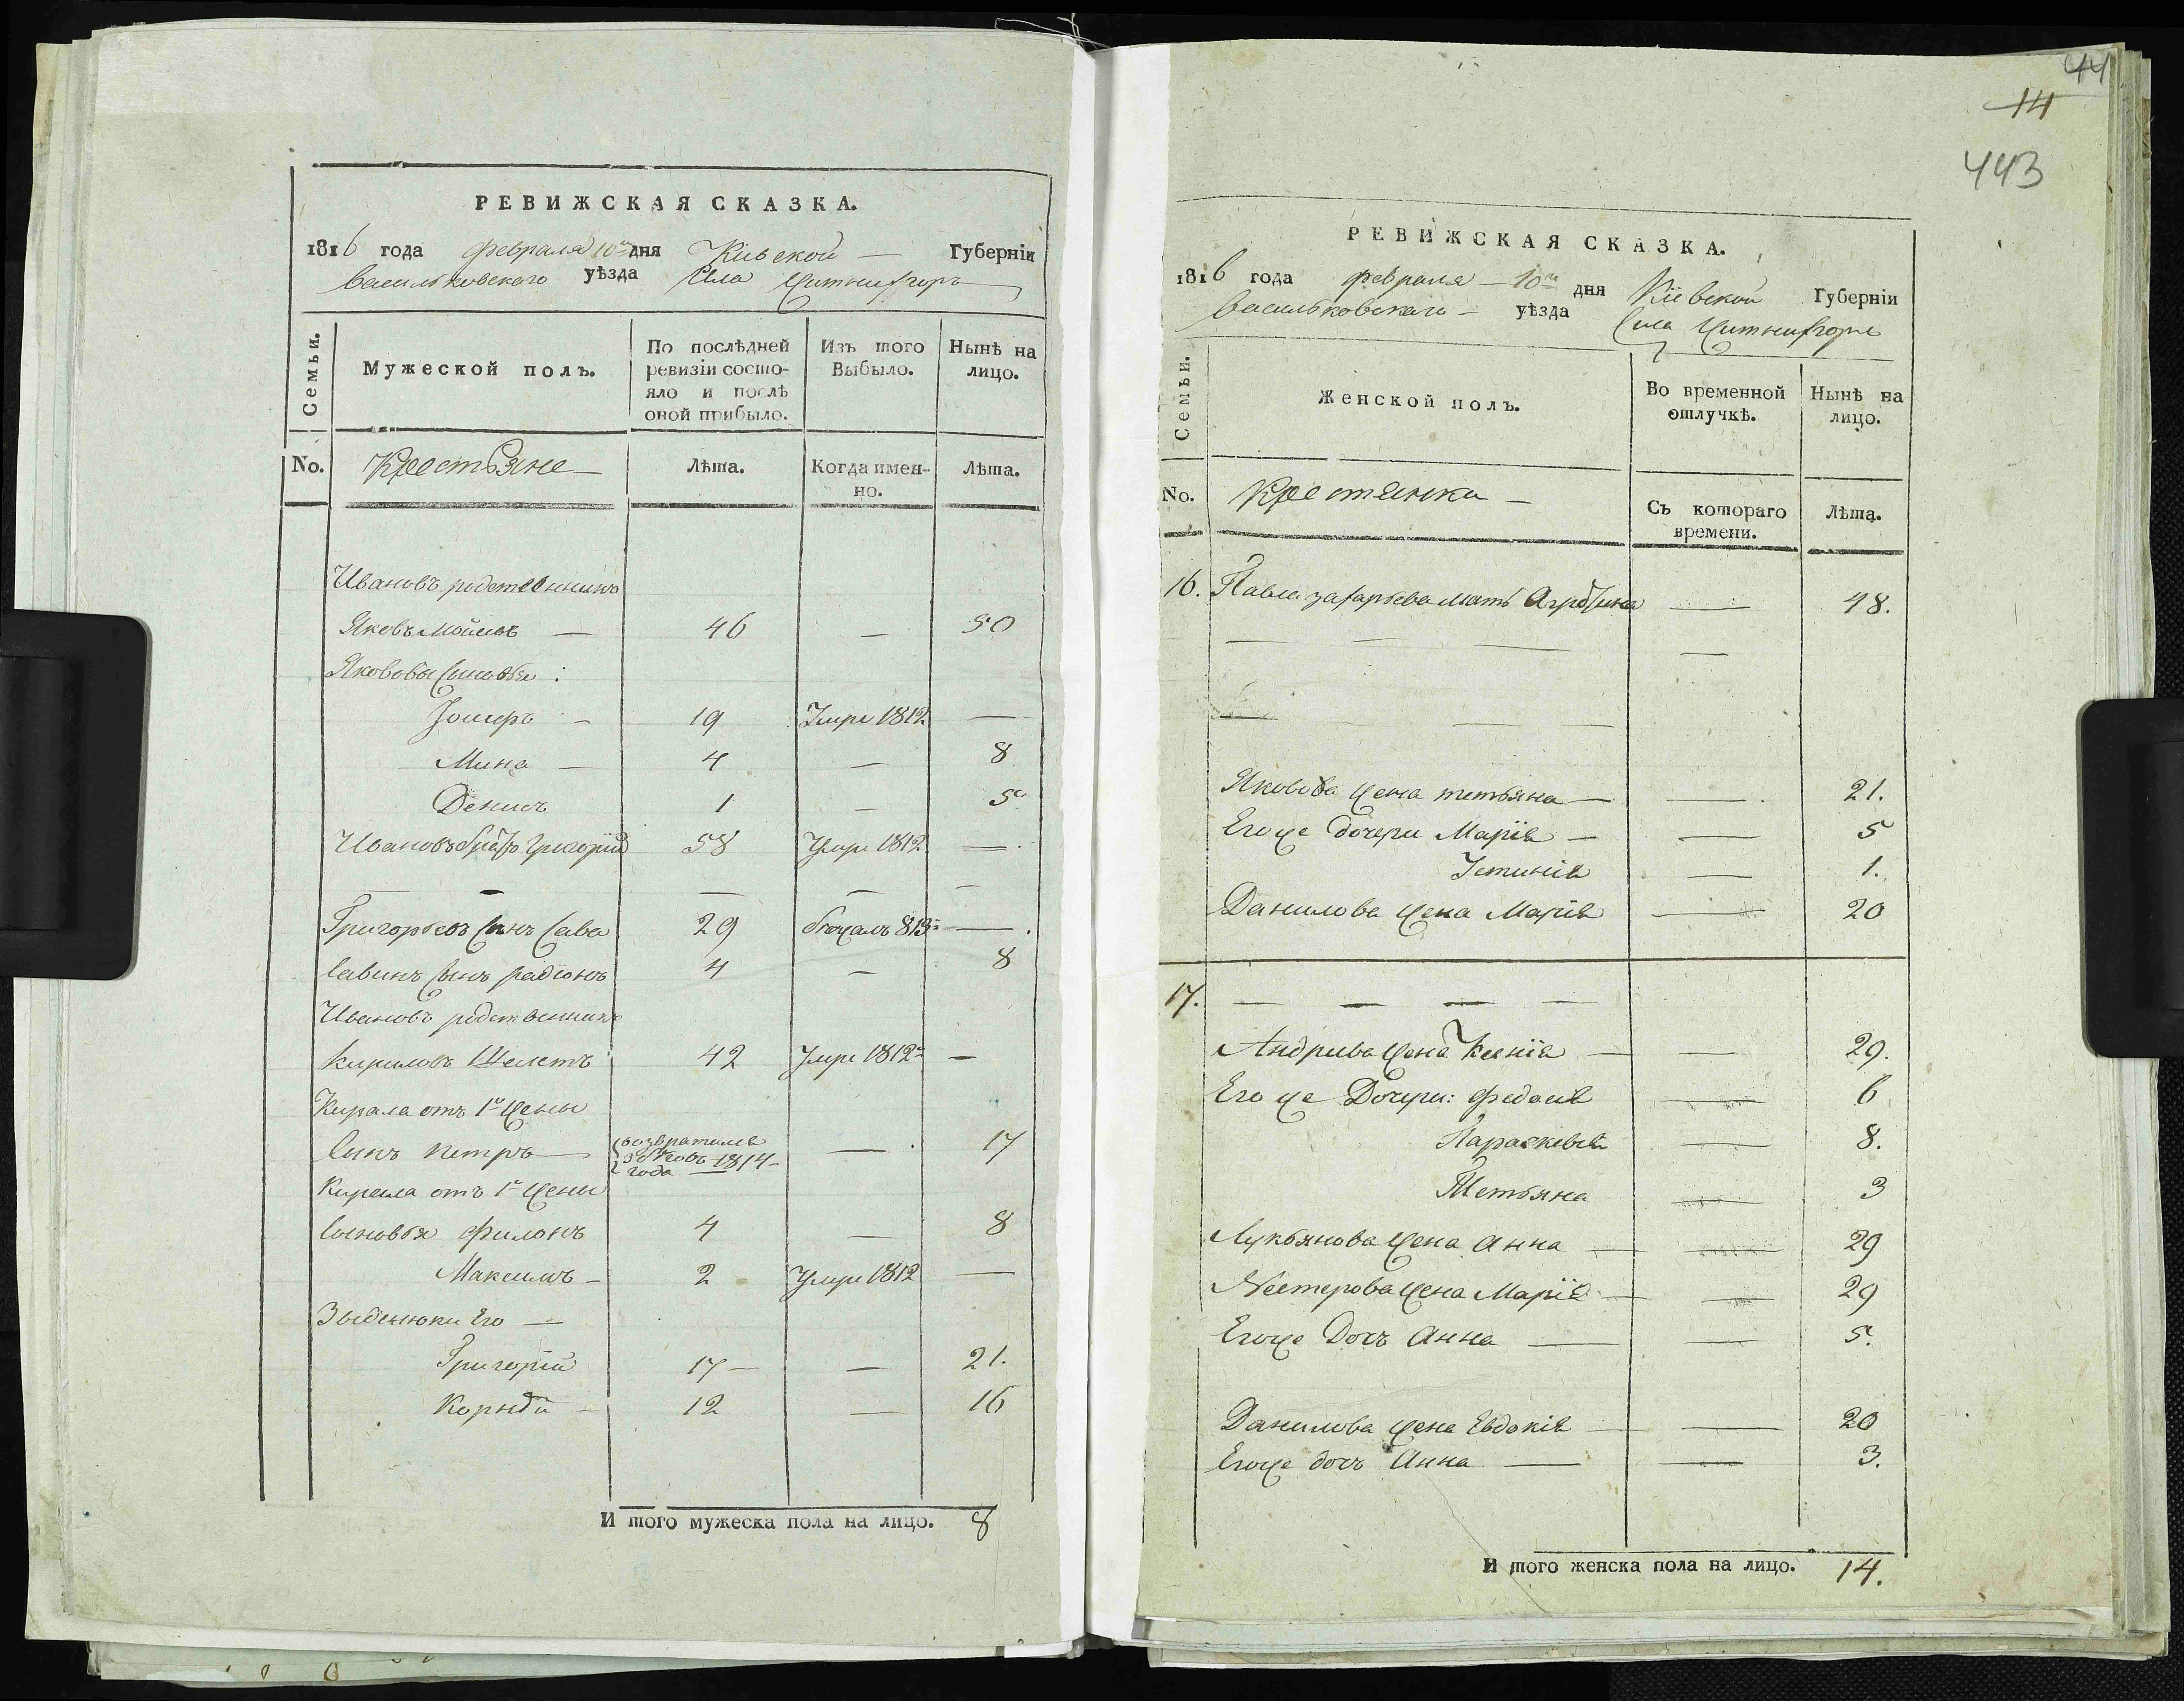 РЕВИЖСКАЯ СКАЗКА.
1816 года февраля 10го дня Киевской Губерніи
Васильковскаго уѣзда Села
Семьи.
Мужеской полъ.
По послѣдней ревизіи состояло и послѣ оной прибыло.
Изъ того Выбыло.
Нынѣ на лицо.
No. Крестьяне Лѣта. Когда именно. Лѣта.
Ивановъ родственникъ
Яковъ 46 — 50
Якововы синовья:
19 Умре 1812 —
Мина — 4 — 8
Денисъ 1 — 5
Ивановъ братъ Григорий 58 Умре 1812 —
— — — —
Григорьевъ синъ Сава 29 бежалъ 813 —
Савинъ синъ радіонъ 4 — 8
Ивановъ родственникъ
Кириловъ 42 Умре 1812 —
Кирила отъ 1й жены
Синъ петръ возвратился 1814 года — 17
Кирила отъ 1й жены
Синовья Филонъ 4 — 8
Максимъ — 2 Умре 1812 —
Его —
Григорій 17 — — 21.
Корній — 12 — 16
И того мужеска пола на лицо. 8
44
14
443
РЕВИЖСКАЯ СКАЗКА.
1816 года февраля — 10го дня Кіевской Губерніи
Васильковскаго — уѣзда Села
Семьи.
Женской полъ.
Во временной отлучкѣ.
Нынѣ на лицо.
No. Крестянки — Съ котораго времени. Лѣта.
16. Павла захарьева мать — 48.
— — — —
— —
Якова жена тетьяна — — 21.
Его же дочери Марія — — 5
Устинія — 1.
Данилова жена Марія — 20
17. — — — —
Андриева жена Ксенія — — 29.
Его же Дочери: Федосія — 6
Параскевія — 8.
Тетьяна — 3
Лукьянова жена Анна — — 29
Нестерова жена Марія — — 29
Его же Дочъ Анна — — 5.
Данилова жена Евдокія — — 20
Его же дочъ Анна — — 3.
И того женска пола на лицо. 14.